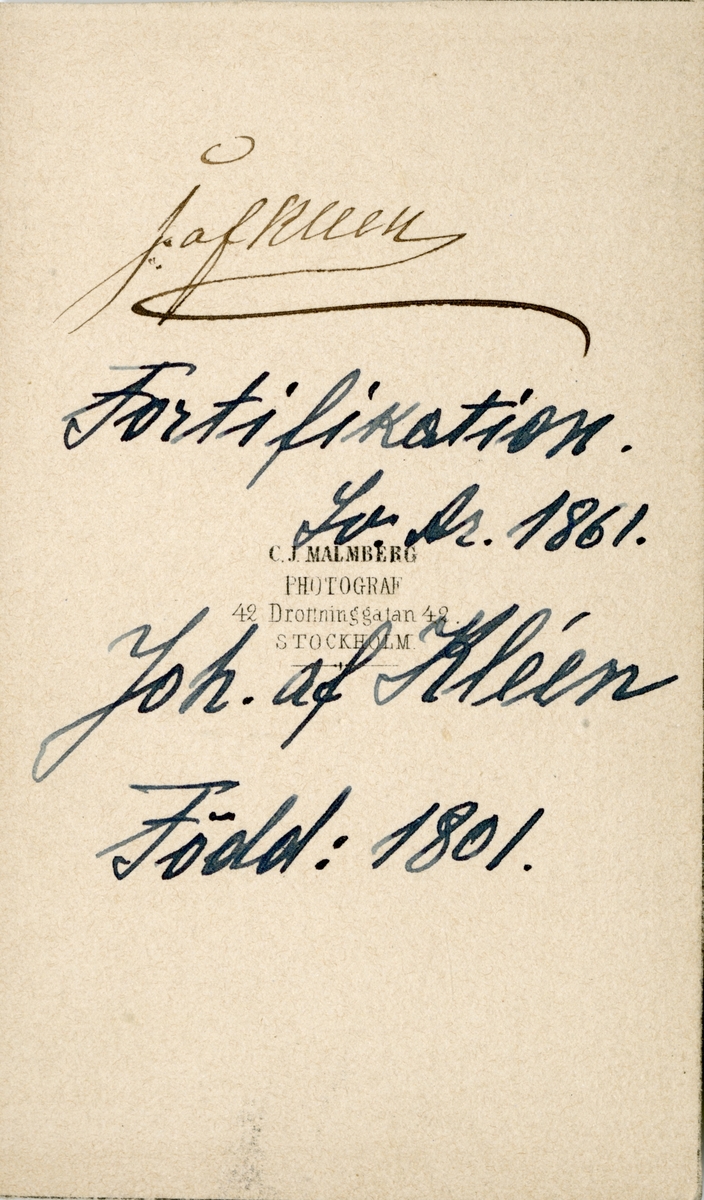 J. af Kleen
Fortifikation.
Sv. Ar. 1861.
C. J. MALMBERG
PHOTOGRAF
42 Drottninggatan 42.
STOCKHOLM.
Joh. af Kléen
Född: 1801.